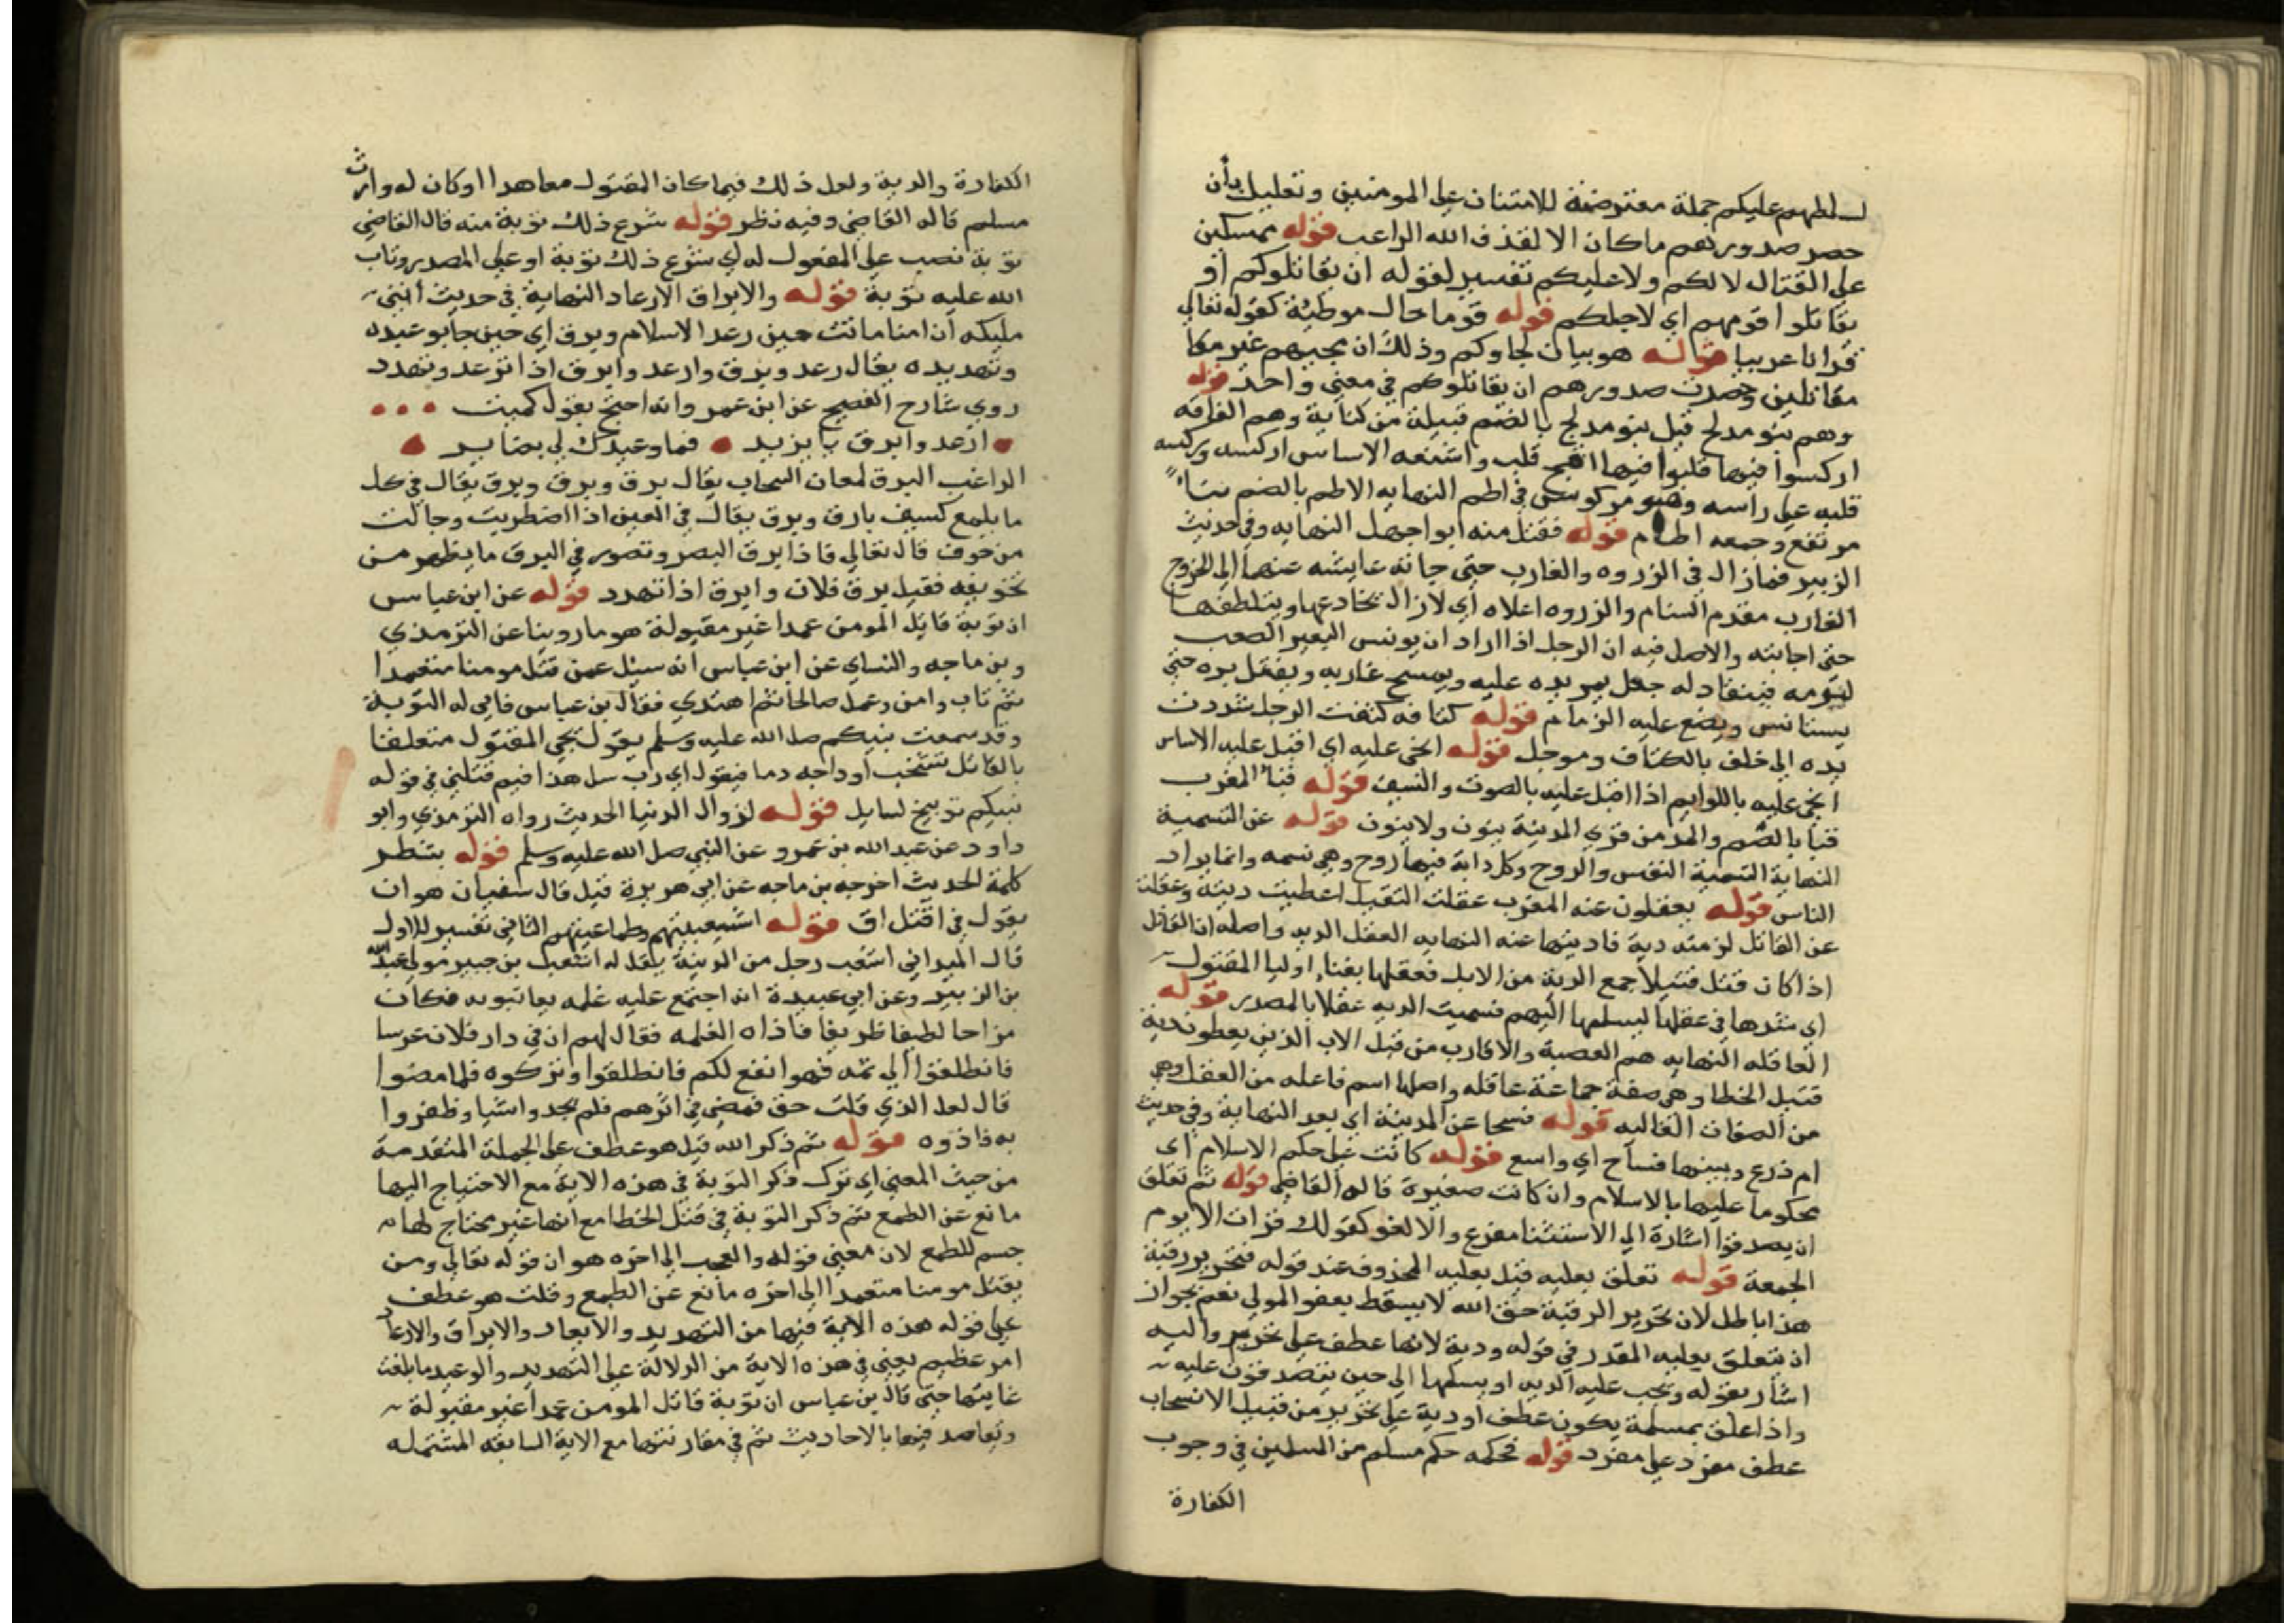 لسلطهم عليكم جملة معترضة للامتنان على المومنين وتعليل بأن
حصر صدورهم ماكان الا لقذف الله الراعب قوله ممسكين
على القتال لا لكم ولا عليكم تفسير لقوله ان يقاتلوكم أو
يقاتلوا قومهم اي لاجلكم قوله قوما حال موطئة كقوله تعالى
قرانا عربيا قوله هو بيان لجاوكم وذلك ان مجيهم غير
مقاتلين وحصرت صدورهم ان يقاتلوكم في معنى واحد قوله
وهم بنو مدلج قيل بنو مدلج بالضم قبيلة من كنانة وهم القافه
اركسوا فيها قلبوا فيها اقبح قلب واشنعه الاساس اركسه وركسه
قلبه على راسه وهو مركوس في اطم النهايه الاطم بالضم بناء
مرتفع وجمعه اطام قوله فقتل منه ابو اجهل النهايه وفي حديث
الزبير فمازال في الزروه والغارب حتى جاته عايشه عنها الى الخروج
الغارب مقدم السنام والزروه اعلاه أي لازال يخادعها ويتلطفها
حتى اجابته والاصل فيه ان الرجل اذا اراد ان يونس البعير الصعب
لينومه فينقاد له جعل يمر يده عليه ويمسح غاربه ويفتل بره حتى
يستانس ويضع عليه الزمام قوله كتافه كتفت الرجل شددت
يده الى خلف بالكتاف وموجل قوله انحى عليه اي اقبل عليه الاساس
انحى عليه باللوايم اذا اقبل عليه بالصوت والسيف قوله قبا المغرب
قبا بالضم والمد من قري المدينة ينون ولا ينون قوله عن التسمية
النهاية التسمية النفس والروح وكل دابة فيها روح وهي نسمه وانما يراد
الناس قوله يعقلون عنه المغرب عقلت القتيل اعطيت ديته وعقلت
عن القاتل لزمته دية فاديتها عنه النهايه العقل الديه واصله ان القاتل
اذا كان قتل قتيلا جمع الدية من الابل فعقلها بفناء اوليا المقتول
اي شدها في عقلها ليسلمها اليهم فسميت الديه عقلا بالمصدر قوله
العاقله النهايه هم العصبة والاقارب من قبل الاب الذين يعطون دية
قتيل الخطا وهي صفة جماعة عاقله واصلها اسم فاعله من العقل وهي
من الصفات الغالبه قوله فسحا عن المدينة اي بعد النهاية وفي حديث
ام ذرع وبيتها فساح اي واسع قوله كانت على حكم الاسلام اى
محكوما عليها بالاسلام وان كانت صغيرة قاله القاضي قوله ثم تعلق
ان يصدقوا اشارة الى الاستثنا مفرع والا لغو كقولك قرات الا يوم
الجمعة قوله تعلق بعليه قيل بعليه المحذوف عند قوله فتحرير رقبة
هذا باطل لان تحرير الرقبة حق الله لا يسقط بعفو المولي نعم يجوان
ان يتعلق بعليه المقدر في قوله ودية لانها عطف على تحرير واليه
اشار بقوله وتجب عليه الديه او يسلمها الى حين يتصدقون عليه
واذا علق بمسلمة يكون عطف أو دية على تحرير من قبيل الانسحاب
عطف مفرد على مفرد قوله فحكمه حكم مسلم من المسلمين في وجوب
الكفارة
الكفارة والدية ولعل ذلك فيما كان المقتول معاهدا اوكان له وارث
مسلم قاله القاضي وفيه نظر قوله شرع ذلك توبة منه قال القاضي
توبة نصب على المفعول له اي شرع ذلك توبة او على المصدر وتاب
الله عليه توبة قوله والابراق الارعاد النهاية في حديث ابنى
مليكه أن امنا ماتت حين رعد الاسلام وبرق اي حين جا بوعيده
وتهديده يقال رعد وبرق وارعد وابرق اذا توعد وتهدد
روي شارح الفصيح عن ابن عمر وانه احتج بقول كميت
ارعد وابرق يا يزيد فما وعيدك لي بضاير
الراغب البرق لمعان السحاب يقال برق وبرق وبرق يقال في كل
ما يلمع كسيف بارق وبرق يقال في العين اذا اضطربت وجالت
من خوف قال تعالي فاذا برق البصر وتصور في البرق ما يظهر من
تخويفه فقيل برق فلان وابرق اذا تهدد قوله عن ابن عباس
ان توبة قاتل المومن عمدا غير مقبولة هو ماروينا عن الترمذي
وبن ماجه والنساي عن ابن عباس انه سيل عمن قتل مومنا متعمدا
ثم تاب وامن وعمل صالحا ثم اهتدي فقال بن عباس فاني له التوبة
وقد سمعت نبيكم صلا الله عليه وسلم يقول يجي المقتول متعلقا
بالقاتل تشخب أوداجه دما فيقول اي رب سل هذا فيم قتلني في قوله
نبيكم توبيخ لسايل قوله لزوال الدنيا الحديث رواه الترمذي وابو
داود عن عبد الله بن عمرو عن النبي صلى الله عليه وسلم قوله بشطر
كلمة الحديث اخرجه بن ماجه عن ابي هريرة قيل قال سفيان هو ان
يقول في اقتل اق قوله اشيعبيتهم وطماعيتهم الثاني تفسير للاول
قال الميداني اشعب رجل من المدينة يقال له اشعب بن جبير مولى عبد الله
بن الزبير وعن ابي عبيدة انه اجتمع عليه غلمه يعاتبونه فكان
مزاحا لطيفا ظريفا فاذاه الغلمه فقال لهم ان في دار فلان عرسا
فانطلقوا الي ثمه فهوا نفع لكم فانطلقوا وتركوه فلما مضوا
قال لعل الذي قلت حق فمضى في اثرهم فلم يجد واشيا وظفروا
به فاذوه قوله ثم ذكر الله قيل هو عطف على الجملة المتقدمة
من حيث المعنى اي ترك ذكر التوبة في هذه الاية مع الاحتياج اليها
مانع عن الطمع ثم ذكر التوبة في قتل الخطا مع انها غير محتاج لها
حسم للطمع لان معنى قوله والعجب الى اخره هو ان قوله تعالي ومن
يقتل مومنا متعمدا الى اخره مانع عن الطمع وقلت هو عطف
على قوله هذه الاية فيها من التهديد والابعاد والابراق والارعاد
امر عظيم يعني في هذه الاية من الدلالة على التهديد والوعيد ما بلغت
غايتها حتى قال بن عباس ان توبة قاتل المومن عمدا غير مقبولة
وتعاضد فيها بالاحاديث ثم في مقارنتها مع الاية السابقه المشتمله